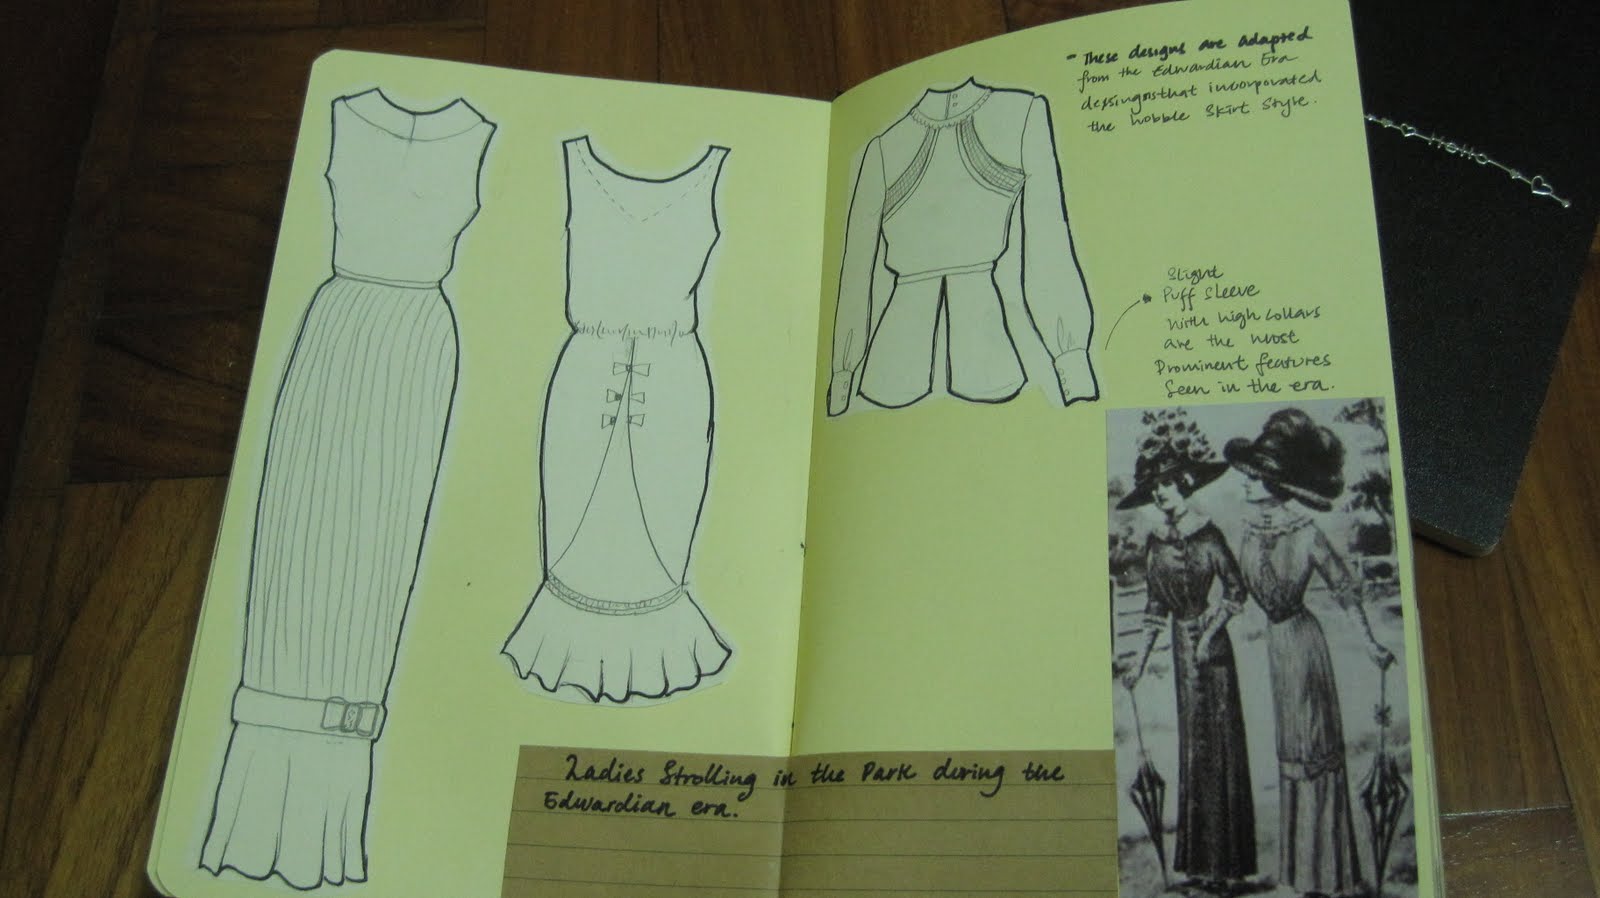 - These designs are adapted
from the Edwardian Era
dessingns that incorporated
the hobble Skirt Style.
Hello
Slight
Puff Sleeve
With high Collars
are the most
Prominent features
Seen in the era.
Ladies Strolling in the Park during the
Edwardian era.